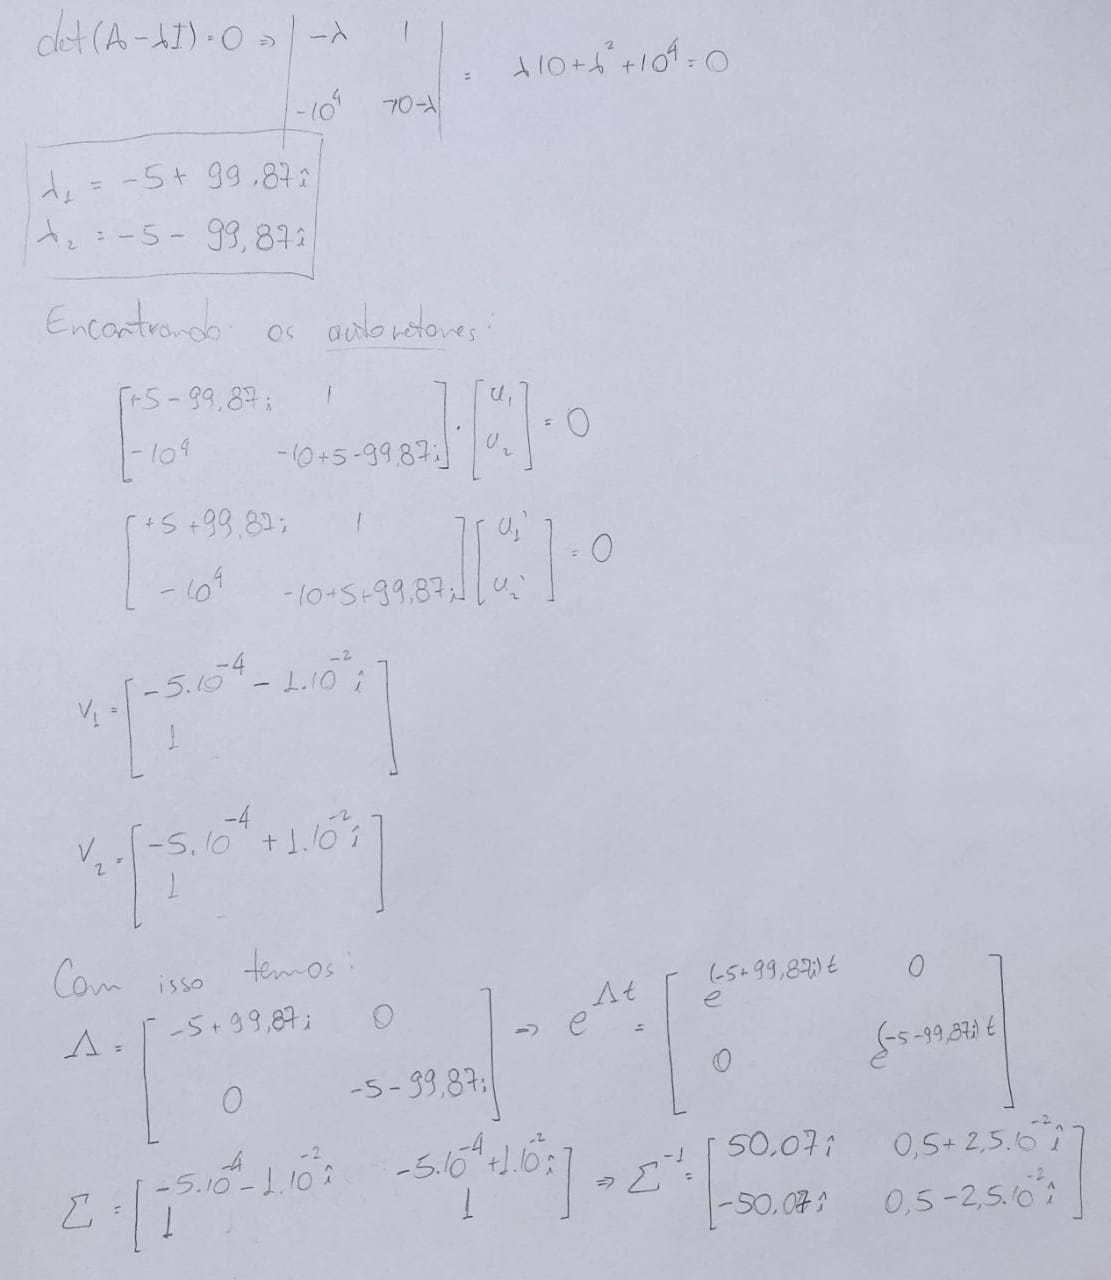 det(A-λI)=0 ⇒ | -λ 1 | = λ10+λ²+10⁴=0
| -10⁴ 70-λ |
λ₁ = -5+ 99,87i
λ₂ = -5- 99,87i
Encontrando os autovetores:
[+5-99,87i 1] · [u₁] = 0
[-10⁴ -10+5-99,87i] [u₂]
[+5+99,87i 1] [u₁'] = 0
[-10⁴ -10+5+99,87i] [u₂']
V₁ = [-5.10⁻⁴ - 1.10⁻² i]
[1]
V₂ = [-5.10⁻⁴ + 1.10⁻² i]
[1]
Com isso temos:
Λ = [-5+99,87i 0] ⇒ e^Λt = [e^(-5+99,87i)t 0]
[0 -5-99,87i] [0 e^(-5-99,87i)t]
Σ = [-5.10⁻⁴-1.10⁻² i -5.10⁻⁴+1.10⁻² i] ⇒ Σ⁻¹ = [50,07i 0,5+2,5.10⁻² i]
[1 1] [-50,07i 0,5-2,5.10⁻² i]